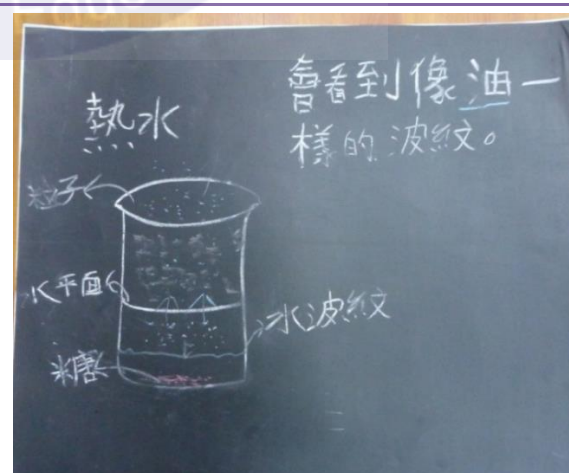 會看到像油一
樣的波紋。
熱水
粒子
水平面
水波紋
糖